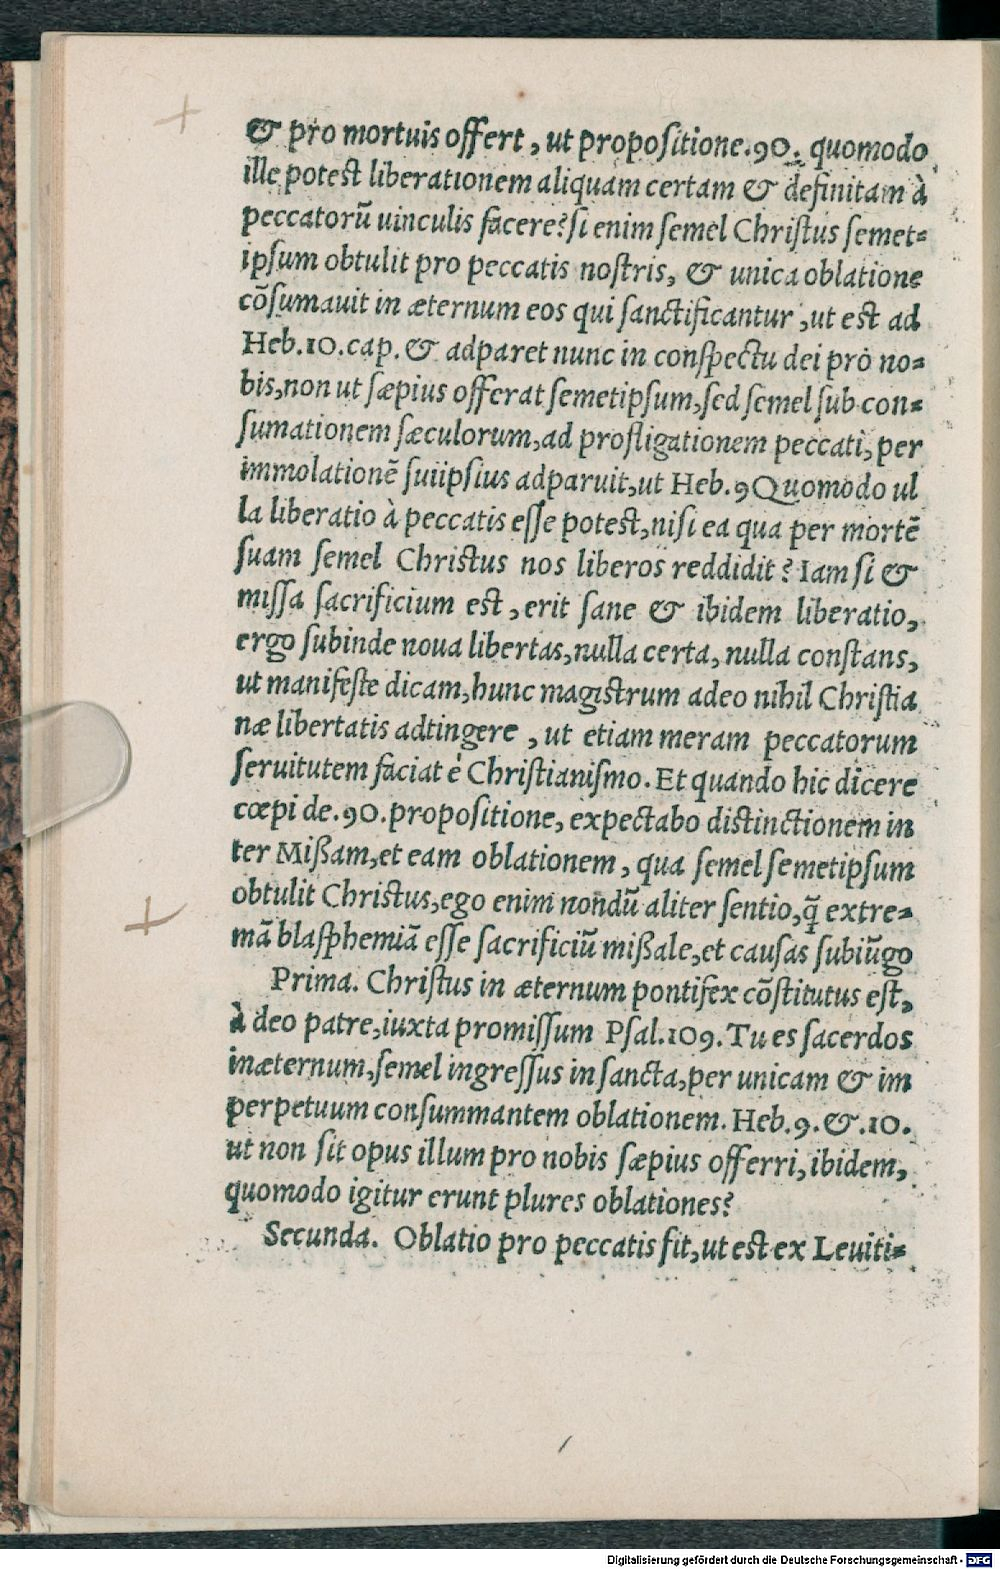 & pro mortuis offert, ut propositione.90. quomodo
ille potest liberationem aliquam certam & definitam à
peccatorũ uinculis facere? si enim semel Christus semet=
ipsum obtulit pro peccatis nostris, & unica oblatione
cõsumauit in æternum eos qui sanctificantur, ut est ad
Heb.10.cap. & adparet nunc in conspectu dei pro no=
bis, non ut sæpius offerat semetipsum, sed semel sub con=
sumationem sæculorum, ad profligationem peccati, per
immolationẽ suiipsius adparuit, ut Heb.9 Quomodo ul
la liberatio à peccatis esse potest, nisi ea qua per mortẽ
suam semel Christus nos liberos reddidit? Iam si &
missa sacrificium est, erit sane & ibidem liberatio,
ergo subinde noua libertas, nulla certa, nulla constans,
ut manifeste dicam, hunc magistrum adeo nihil Christia
næ libertatis adtingere, ut etiam meram peccatorum
seruitutem faciat è Christianismo. Et quando hic dicere
cœpi de.90.propositione, expectabo distinctionem in
ter Mißam, et eam oblationem, qua semel semetipsum
obtulit Christus, ego enim nondũ aliter sentio, q̃ extre=
mã blasphemiã esse sacrificiũ mißale, et causas subiũgo
Prima. Christus in æternum pontifex cõstitutus est,
à deo patre, iuxta promissum Psal.109. Tu es sacerdos
inæternum, semel ingressus in sancta, per unicam & im
perpetuum consummantem oblationem. Heb.9.&.10.
ut non sit opus illum pro nobis sæpius offerri, ibidem,
quomodo igitur erunt plures oblationes?
Secunda. Oblatio pro peccatis fit, ut est ex Leuiti=
Digitalisierung gefördert durch die Deutsche Forschungsgemeinschaft - DFG